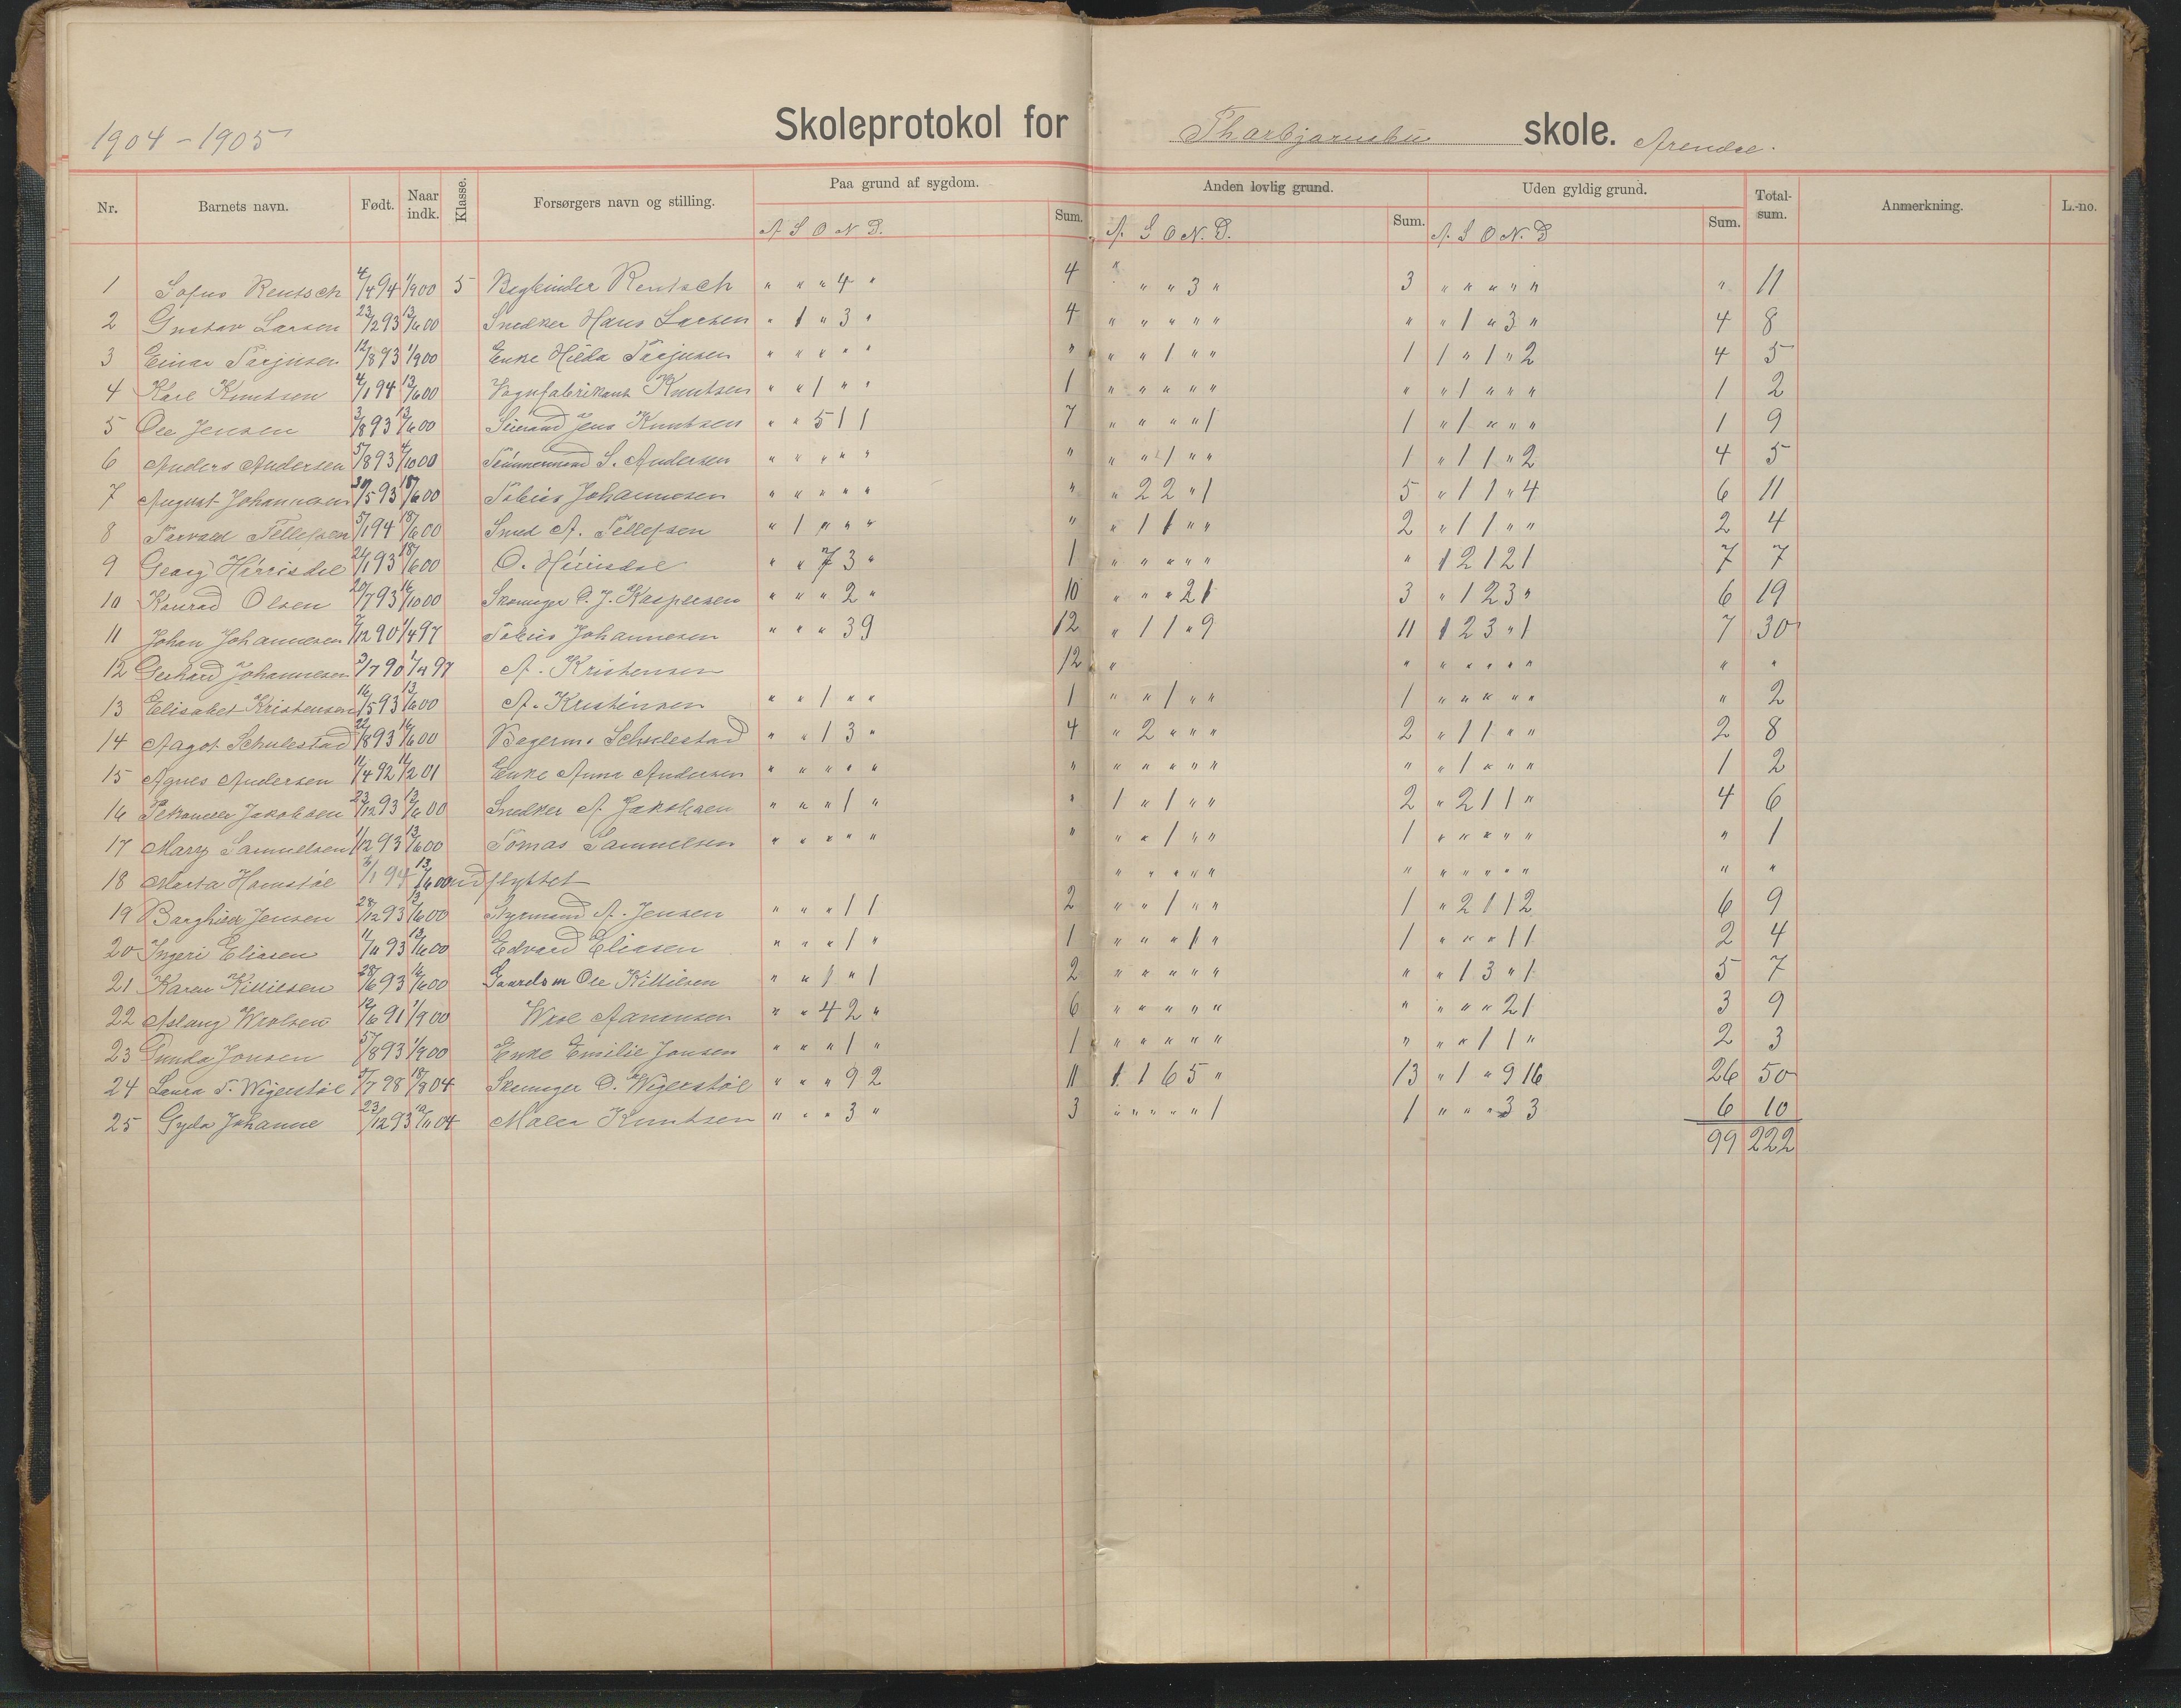 1904-1905
Skoleprotokol for Thorbjørnsbu skole. Arendal.
Nr. Barnets navn. Født. Naar indk. Klasse. Forsørgers navn og stilling. Paa grund af sygdom. Sum. Anden lovlig grund. Sum. Uden gyldig grund. Sum. Total-sum. Anmerkning. L.-no.
A S O N D. A. S O N. D. A. S O N. D
1 Sofus Rentsch 4/4 94 1/9 00 5 Bogbinder Rentsch " " " 4 " 4 " " " 3 " 3 " " " " " " 11
2 Gustav Larsen 23/2 93 13/6 00 Snedker Hans Larsen " 1 " 3 " 4 " " " " " " " 1 " 3 " 4 8
3 Einar Tarjusen 12/8 93 1/9 00 Enke Hilda Tarjusen " " " " " " " " 1 " " 1 1 " 1 " 2 4 5
4 Karl Knutsen 4/1 94 13/6 00 Vognfabrikant Knutsen " " 1 " " 1 " " " " " " " 1 " " " 1 2
5 Ole Jensen 3/8 93 13/6 00 Jens Knutsen " " 5 1 1 7 " " " " 1 1 " 1 " " " 1 9
6 Anders Andersen 5/8 93 4/10 00 Tømmermand S. Andersen " " " " " " " " 1 " " 1 " 1 1 " 2 4 5
7 August Johannesen 30/5 93 18/6 00 Tobias Johannesen " " " " " " " 2 2 " 1 5 " 1 1 " 4 6 11
8 Torvald Tellefsen 5/1 94 18/6 00 Smed A. Tellefsen " 1 " " " " " 1 1 " " 2 " 1 1 " " 2 4
9 Georg 24/1 93 18/6 00 O. " " 7 3 " 1 " " " " " " 1 2 1 2 1 7 7
10 Konrad Olsen 20/7 93 16/10 00 Skomager O. J. Kaspersen " " " 2 " 10 " " " 2 1 3 " 1 2 3 " 6 19
11 Johan Johannesen 7/12 90 1/4 97 Tobias Johannesen " " " 3 9 12 " 1 1 " 9 11 1 2 3 " 1 7 30
12 Gerhard Johannesen 3/7 90 1/4 97 A. Kristensen 12 " " " " " " " " "
13 Elisabet Kristensen 16/5 93 13/6 00 A. Kristensen " " 1 " " 1 " " 1 " " 1 " " " " " " 2
14 Aagot Schulestad 22/8 93 16/6 00 Bagerm. Schulestad " " 1 3 " 4 " 2 " " " 2 " 1 1 " " 2 8
15 Agnes Andersen 11/4 92 11/2 01 Enke Anna Andersen " " " " " " " " " " " " " 1 " " " 1 2
16 Petronelle Jakobsen 23/12 93 13/6 00 Snedker A. Jakobsen " " " 1 " " 1 " 1 " " 2 " 2 1 1 " 4 6
17 Mary Samuelsen 1/12 93 13/6 00 Tomas Samuelsen " " " " " " " " 1 " " 1 " " " " " " 1
18 Marta Hamstøl 7/1 94 13/6 00 udflyttet " " " " " " " " " " " " "
19 Borghild Jensen 28/12 93 13/6 00 Styrmand A. Jensen " " " 1 1 2 " " 1 " " 1 " 2 1 1 2 6 9
20 Ingeri Eliasen 11/11 93 13/6 00 Edvard Eliasen " " " 1 " 1 " " " 1 " 1 " " " 1 1 2 4
21 Karen Killilsen 28/6 93 16/6 00 Gaardsm Ole Killilsen " " 1 " 1 2 " " " " " " " 1 3 " 1 5 7
22 Aslaug Wrolsen 12/6 91 1/9 00 Wrol Aanonsen " " 4 2 " 6 " " " " " " " " " 2 1 3 9
23 Gunda Jonsen 5/8 93 1/9 00 Enke Emilie Jonsen " " " 1 " 1 " " " " " " " " 1 1 " 2 3
24 Laura T. Wigerstøl 5/7 98 18/8 04 Skomager O. Wigerstøl " " " 9 2 11 1 1 6 5 " 13 " 1 " 9 16 26 50
25 Gyda Johanne 23/12 93 12/11 04 Maler Knutsen " " " 3 " 3 " " " " 1 1 " " " 3 3 6 10
99 222